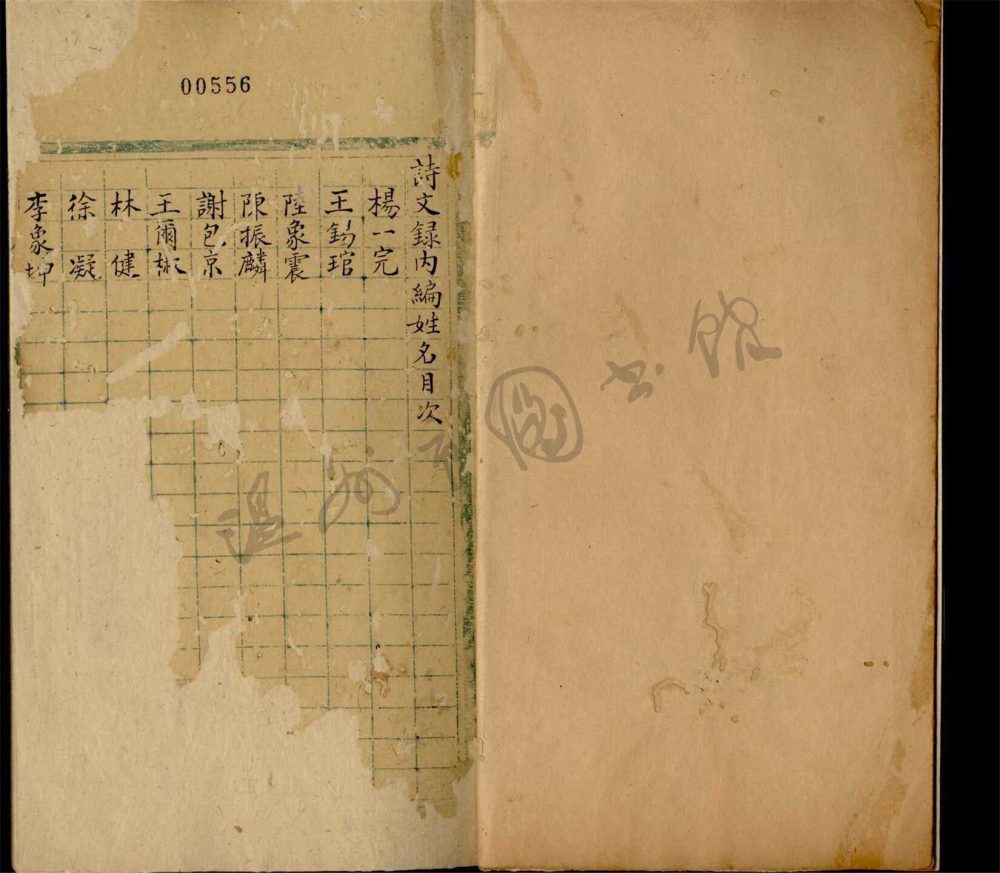 00556
詩文録内編姓名目次
楊一完
王錫琯
陸象震
陳振麟
謝包京
王爾彬
林健
徐凝
李象坤
温州市圖书館